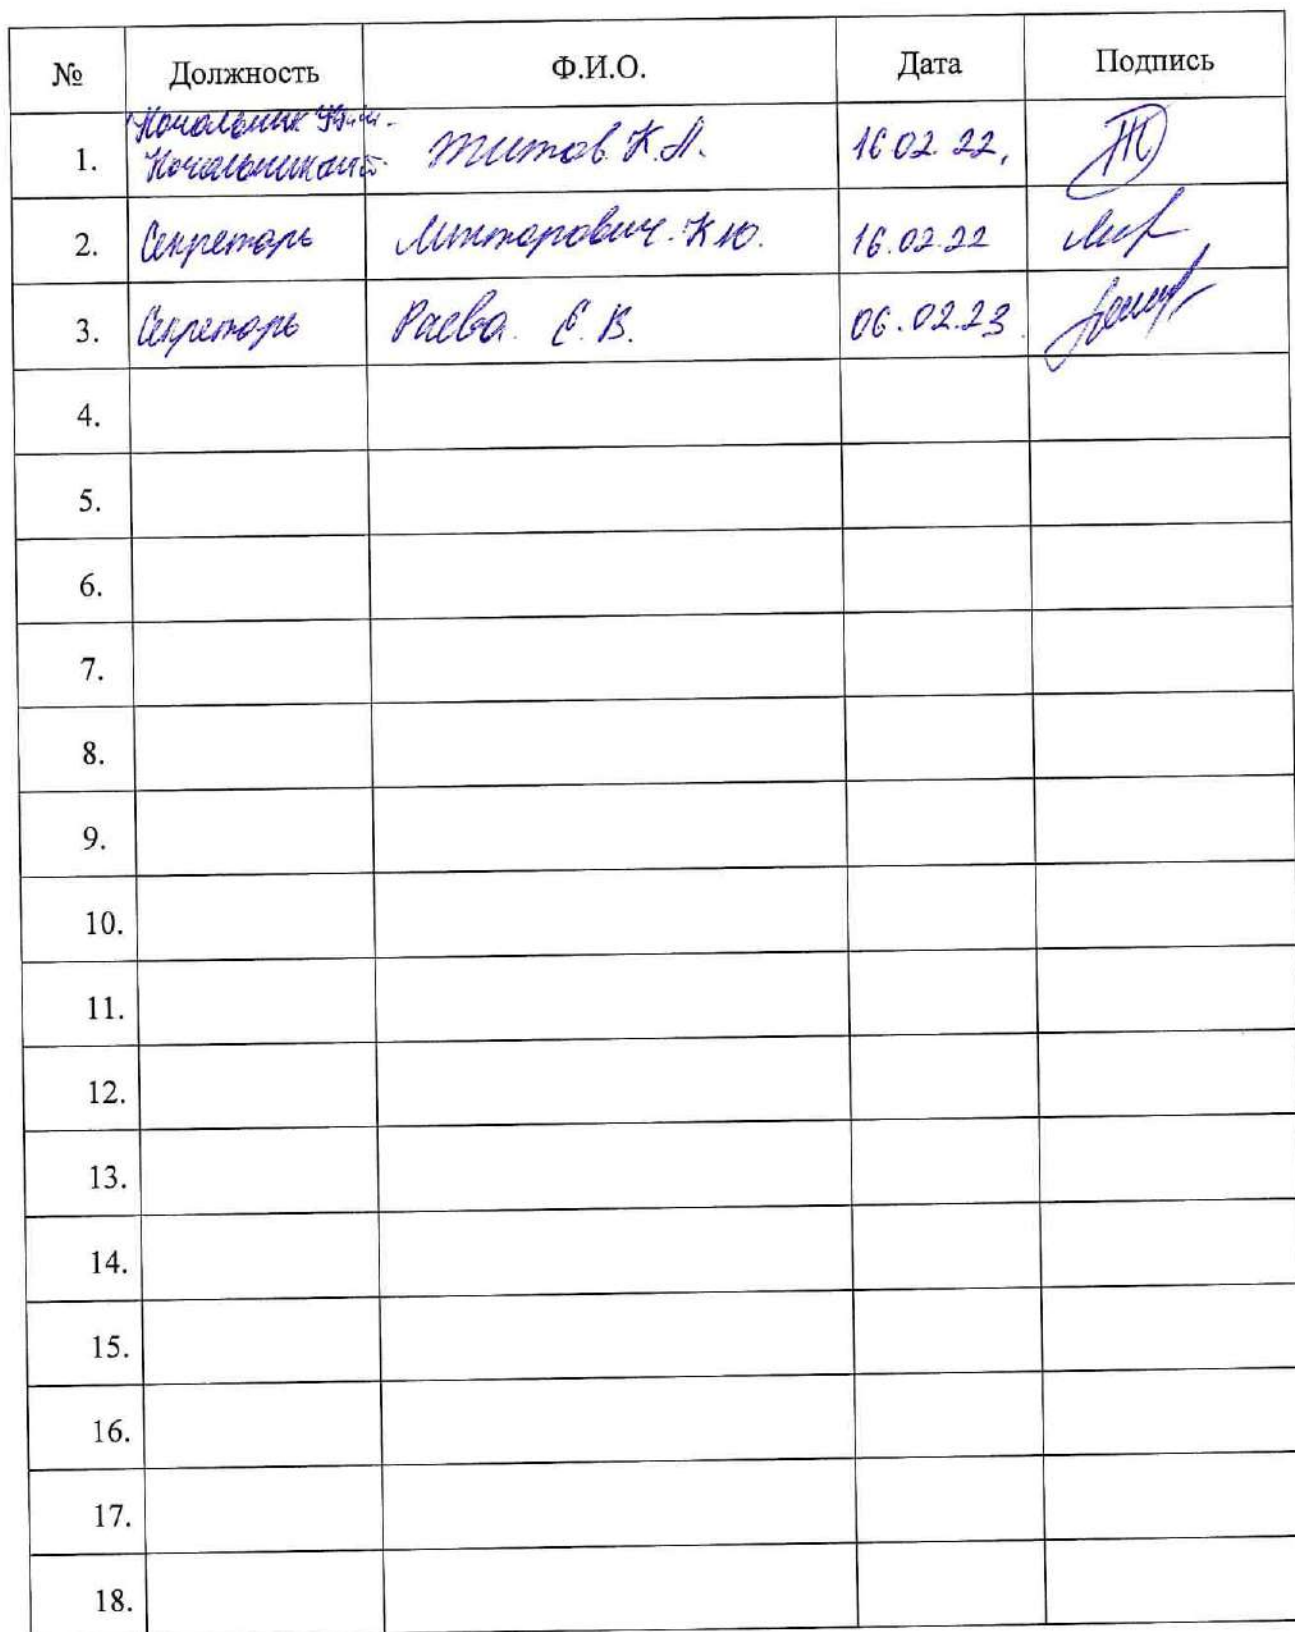 № Должность Ф.И.О. Дата Подпись
Начальник
1. Титов К.А. 16.02.22,
2. Секретарь К.Ю. 16.02.22
3. Секретарь Раева. Е.В. 06.02.23.
4.
5.
6.
7.
8.
9.
10.
11.
12.
13.
14.
15.
16.
17.
18.